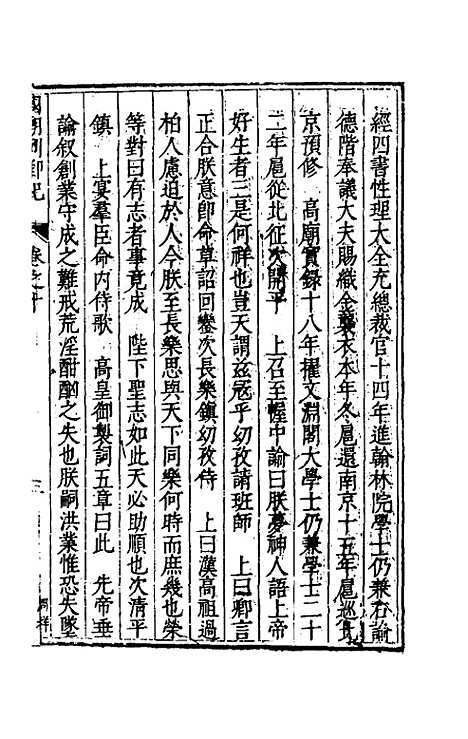 經四書性理大全充總裁官十四年進翰林院學士仍兼右諭
德階奉議大夫賜織金襲衣本年冬扈還南京十五年扈巡北
京預修　高廟實錄十八年擢文淵閣大學士仍兼學士二十
二年扈從北征次開平　上召至幄中諭曰朕夢神人語上帝
好生者三是何祥也豈天謂茲冦乎幼孜請班師　上曰卿言
正合朕意卽命草詔回鑾次長樂鎮幼孜侍　上曰漢高祖過
柏人慮迫於人今朕至長樂思與天下同樂何時而庶幾也榮
等對曰有志者事竟成　陛下聖志如此天必助順也次清平
鎮　上宴羣臣命内侍歌　高皇御製詞五章曰此　先帝垂
論叙創業守成之難戒荒淫酣酗之失也朕嗣洪業惟恐失墜
國朝列卿紀　卷之十　三